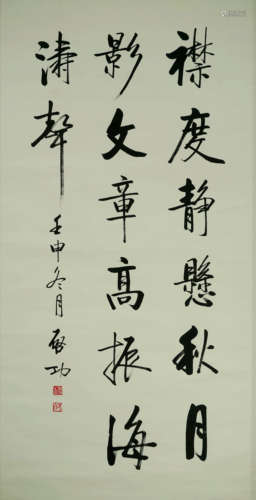 襟度静懸秋月
影文章高振海
濤聲
壬申冬月启功